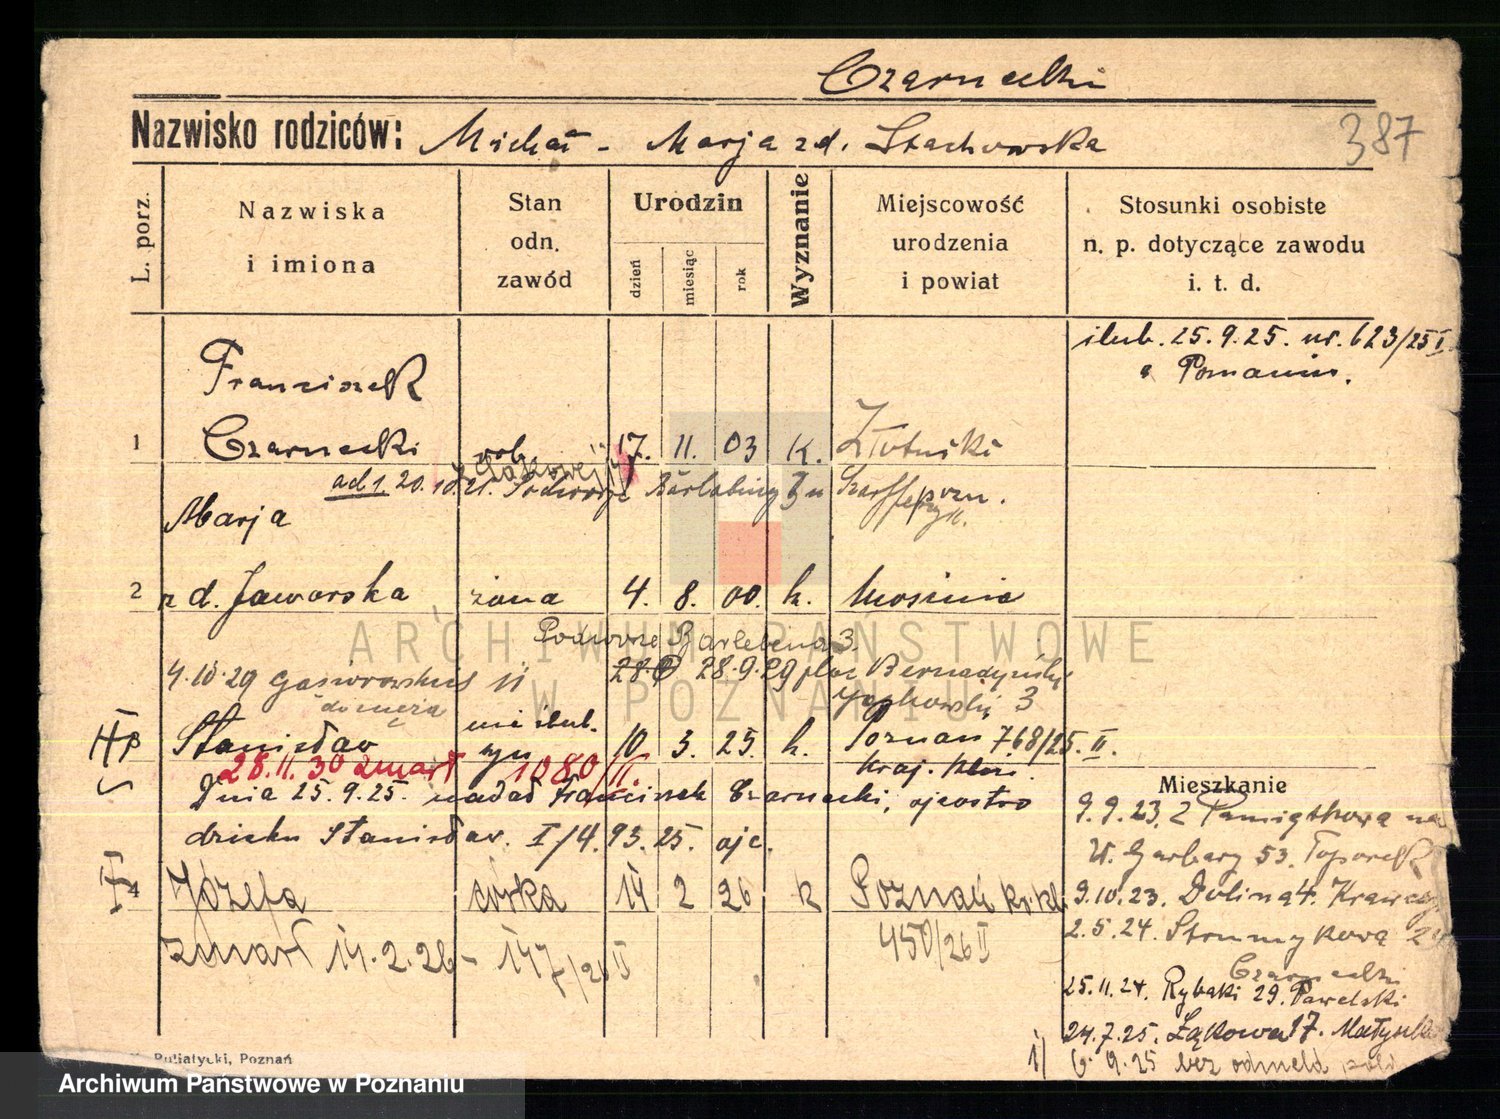 Czarnecki
Nazwisko rodziców: Michał - Marja zd. Stachowska
387
L. porz.
Nazwiska i imiona
Stan odn. zawód
Urodzin
dzień
miesiąc
rok
Wyznanie
Miejscowość urodzenia i powiat
Stosunki osobiste n. p. dotyczące zawodu i. t. d.
ślub. 25.9.25. nr. 623/25 I
Poznaniu.
Franciszek
1 Czarnecki rob. 17. 11. 03 k. Złotniki
ad 1. 20. 10. 21. Podwórze
Marja
2 zd. Jaworska żona 4. 8. 00. k. Mosinie
ARCHIWUM PAŃSTWOWE
W POZNANIU
Podwórze 3.
4.10.29 Gąsiorowskich 11 28. 28.9.29 plac Bernadyński
do męża 3
Stanisław nie ślub. syn 10 3. 25. k. Poznań 768/25. II.
28.11.30 zmarł 1080/II.
Dnia 25.9.25. nadał Franciszek Czarnecki, ojcostwo
dziecku Stanisław. I/4. 93. 25. ojc.
4 Józefa córka 14 2 26 k Poznań
zmarł 14.2.26 - 147/26 II 450/26 II
Mieszkanie
9.9.23. Pamiątkowa
W. Garbary 53. Toporek
9.10.23. Dolina 4.
2.5.24. Strumykowa
Czarnecki
25.11.24. Rybaki 29. Pawelski
24.7.25. Łąkowa 17.
1/ 6.9.25 bez odmeld.
Putiatycki, Poznań
Archiwum Państwowe w Poznaniu